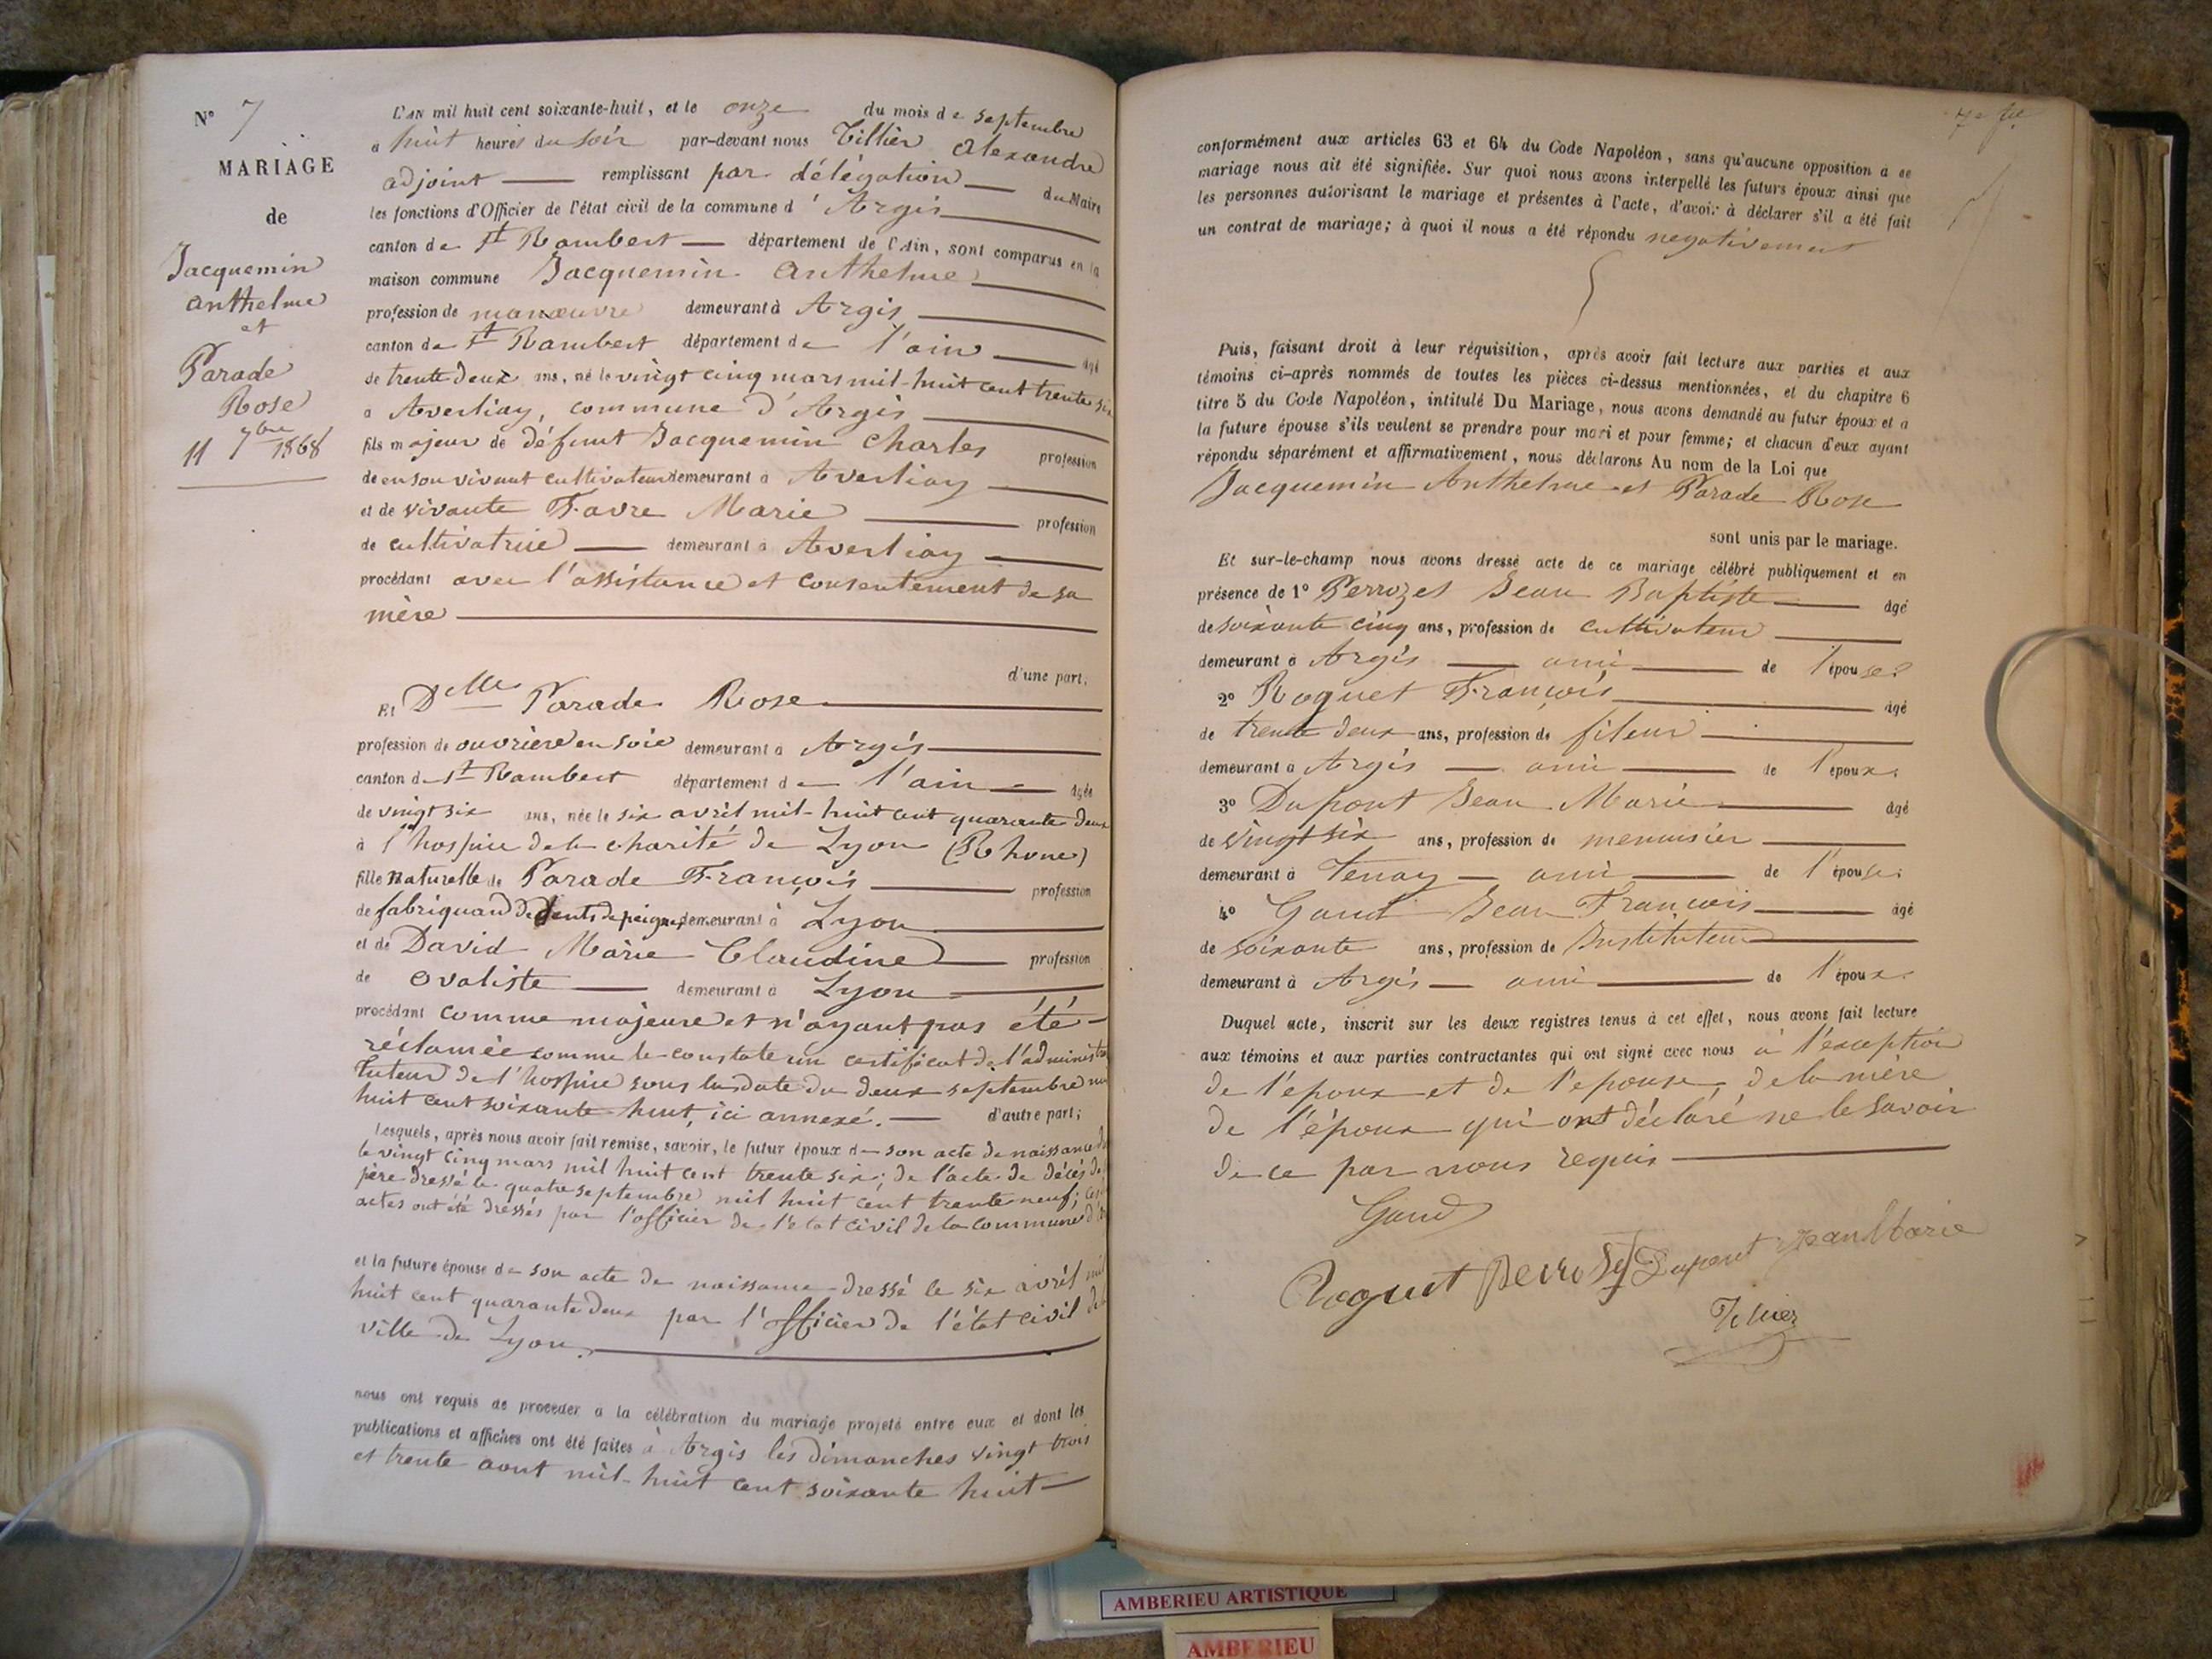 N° 7
MARIAGE
de
Jacquemin
anthelme
et
Parade
Rose
11 7bre 1868
L'AN mil huit cent soixante-huit, et le onze du mois de septembre
a huit heures du soir par-devant nous Tillier Alexandre
adjoint remplissant par délégation du Maire
les fonctions d'Officier de l'état civil de la commune d'Argis
canton de St Rambert département de l'Ain, sont comparus en la
maison commune Jacquemin Anthelme
profession de manœuvre demeurant à Argis
canton de St Rambert département de l'ain âgé
de trente deux ans, né le vingt cinq mars mil-huit cent trente six
a Averliay, commune d'Argis
fils majeur de défunt Jacquemin Charles profession
de en son vivant cultivateur demeurant a Averliay
et de vivante Favre Marie profession
de cultivatrice demeurant a Averliay
procédant avec l'assistance et consentement de sa
mère
d'une part;
Et Delle Parade Rose
profession de ouvrière en soie demeurant a Argis
canton de St Rambert département de l'ain âgée
de vingt six ans, née le six avril mil-huit cent quarante deux
à l'hospice de la charité de Lyon (Rhone)
fille naturelle de Parade François profession
de fabriquand de dents de peignes demeurant à Lyon
et de David Marie Claudine profession
de ovaliste demeurant à Lyon
procédant comme majeure et n'ayant pas été
réclamée comme le constate un certificat de l'adminis
tuteur de l'hospice sous la date du deux septembre mil
huit cent soixante huit, ici annexé. d'autre part;
Lesquels, après nous avoir fait remise, savoir, le futur époux de son acte de naissance
le vingt cinq mars mil huit cent trente six; de l'acte de décès de
père dressé le quatre septembre mil huit cent trente neuf; ces
actes ont été dressés par l'officier de l'état civil de la commune
et la future épouse de son acte de naissance dressé le six avril mil
huit cent quarante deux par l'officier de l'état civil de
ville de Lyon.
nous ont requis de procéder a la célébration du mariage projeté entre eux et dont les
publications et affiches ont été faites à Argis les dimanches vingt trois
et trente aout mil-huit cent soixante huit
conformément aux articles 63 et 64 du Code Napoléon, sans qu'aucune opposition à ce
mariage nous ait été signifiée. Sur quoi nous avons interpellé les futurs époux ainsi que
les personnes autorisant le mariage et présentes à l'acte, d'avoir à déclarer s'il a été fait
un contrat de mariage; à quoi il nous a été répondu negativement
Puis, faisant droit à leur réquisition, après avoir fait lecture aux parties et aux
témoins ci-après nommés de toutes les pièces ci-dessus mentionnées, et du chapitre 6
titre 5 du Code Napoléon, intitulé Du Mariage, nous avons demandé au futur époux et a
la future épouse s'ils veulent se prendre pour mari et pour femme; et chacun d'eux ayant
répondu séparément et affirmativement, nous déclarons Au nom de la Loi que
Jacquemin Anthelme et Parade Rose
sont unis par le mariage.
Et sur-le-champ nous avons dressé acte de ce mariage célébré publiquement et en
présence de 1° Perrozet Jean Baptiste âgé
de soixante cinq ans, profession de cultivateur
demeurant a Argis ami de l'épouse
2° Roguet François âgé
de trente deux ans, profession de fileur
demeurant a Argis ami de l'époux
3° Dupont Jean Marie âgé
de vingt six ans, profession de menuisier
demeurant à Tenay ami de l'épouse
4° Gaud Jean François âgé
de soixante ans, profession de Instituteur
demeurant à Argis ami de l'époux
Duquel acte, inscrit sur les deux registres tenus à cet effet, nous avons fait lecture
aux témoins et aux parties contractantes qui ont signé avec nous à l'exception
de l'époux et de l'epouse, de la mère
de l'époux qui ont déclaré ne le savoir
de ce par nous requis
Gaud
Roguet Perrozet Dupont Jean Marie
Tillier
AMBERIEU ARTISTIQUE
AMBERIEU